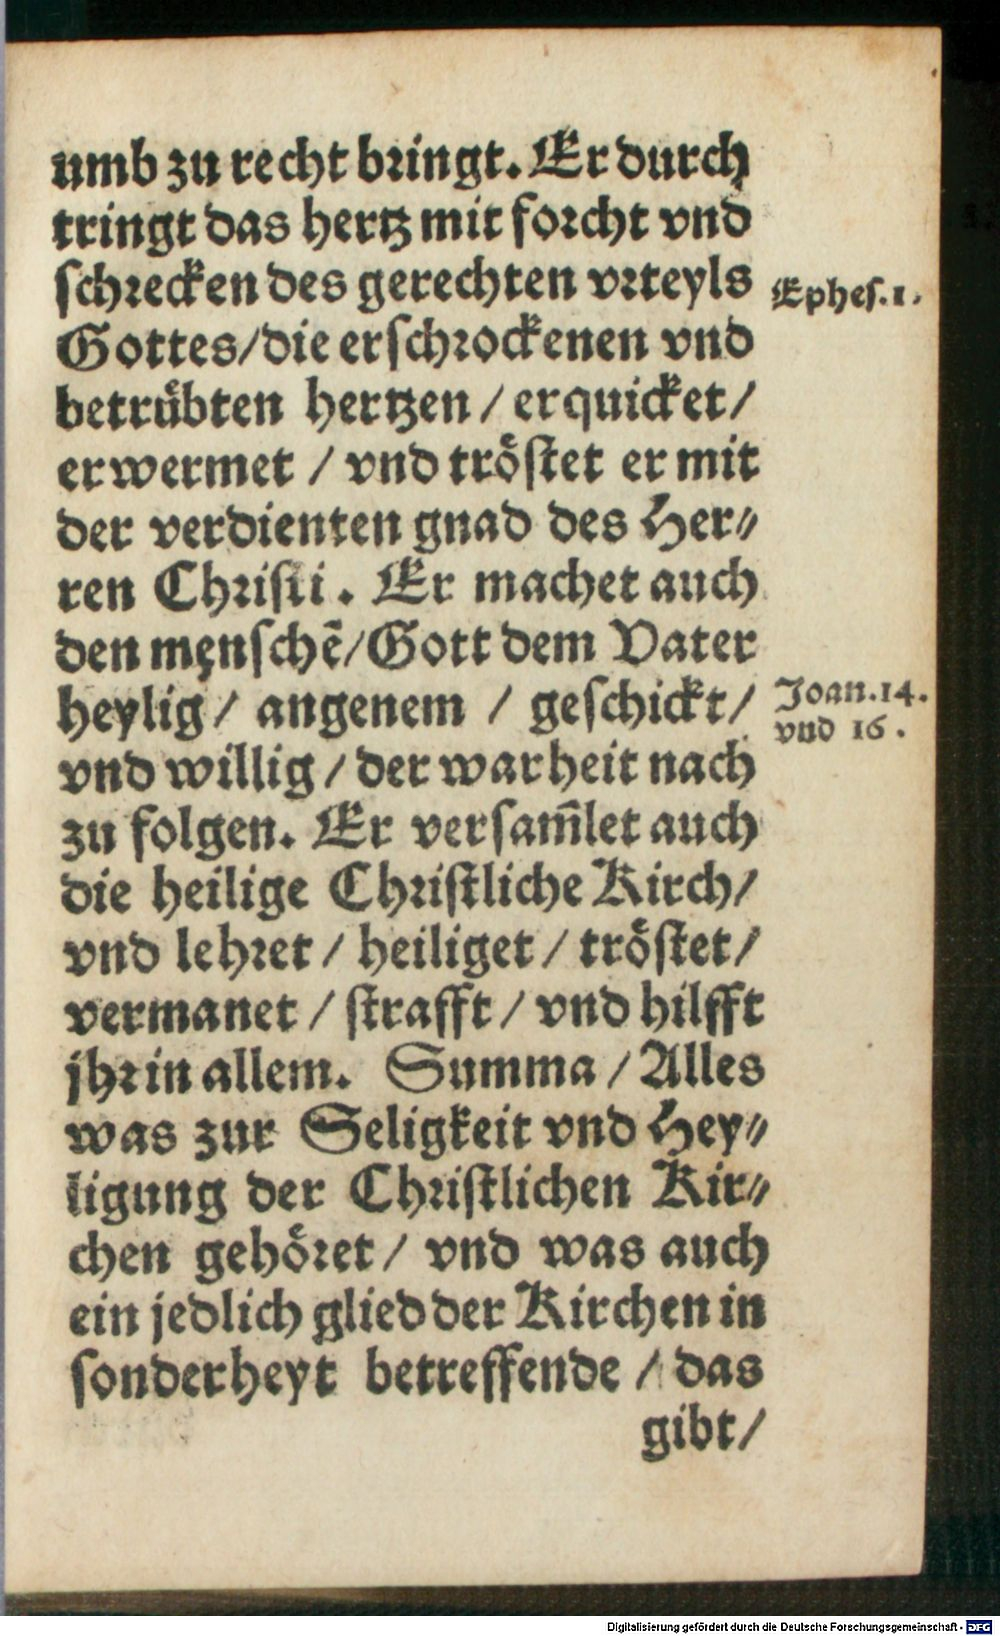 umb zu recht bringt. Er durch
tringt das hertz mit forcht vnd
schrecken des gerechten vrteyls
Ephes. 1.
Gottes/die erschrockenen vnd
betrübten hertzen / erquicket/
erwermet / vnd tröstet er mit
der verdienten gnad des Her⸗
ren Christi. Er machet auch
den menschẽ/Gott dem Vater
heylig/ angenem / geschickt/
Joan. 14.
vnd 16.
vnd willig / der warheit nach
zu folgen. Er versam̄let auch
die heilige Christliche Kirch/
vnd lehret / heiliget / tröstet/
vermanet / strafft / vnd hilfft
jhr in allem. Summa / Alles
was zur Seligkeit vnd Hey⸗
ligung der Christlichen Kir⸗
chen gehöret / vnd was auch
ein jedlich glied der Kirchen in
sonderheyt betreffende / das
gibt/
Digitalisierung gefördert durch die Deutsche Forschungsgemeinschaft - DFG